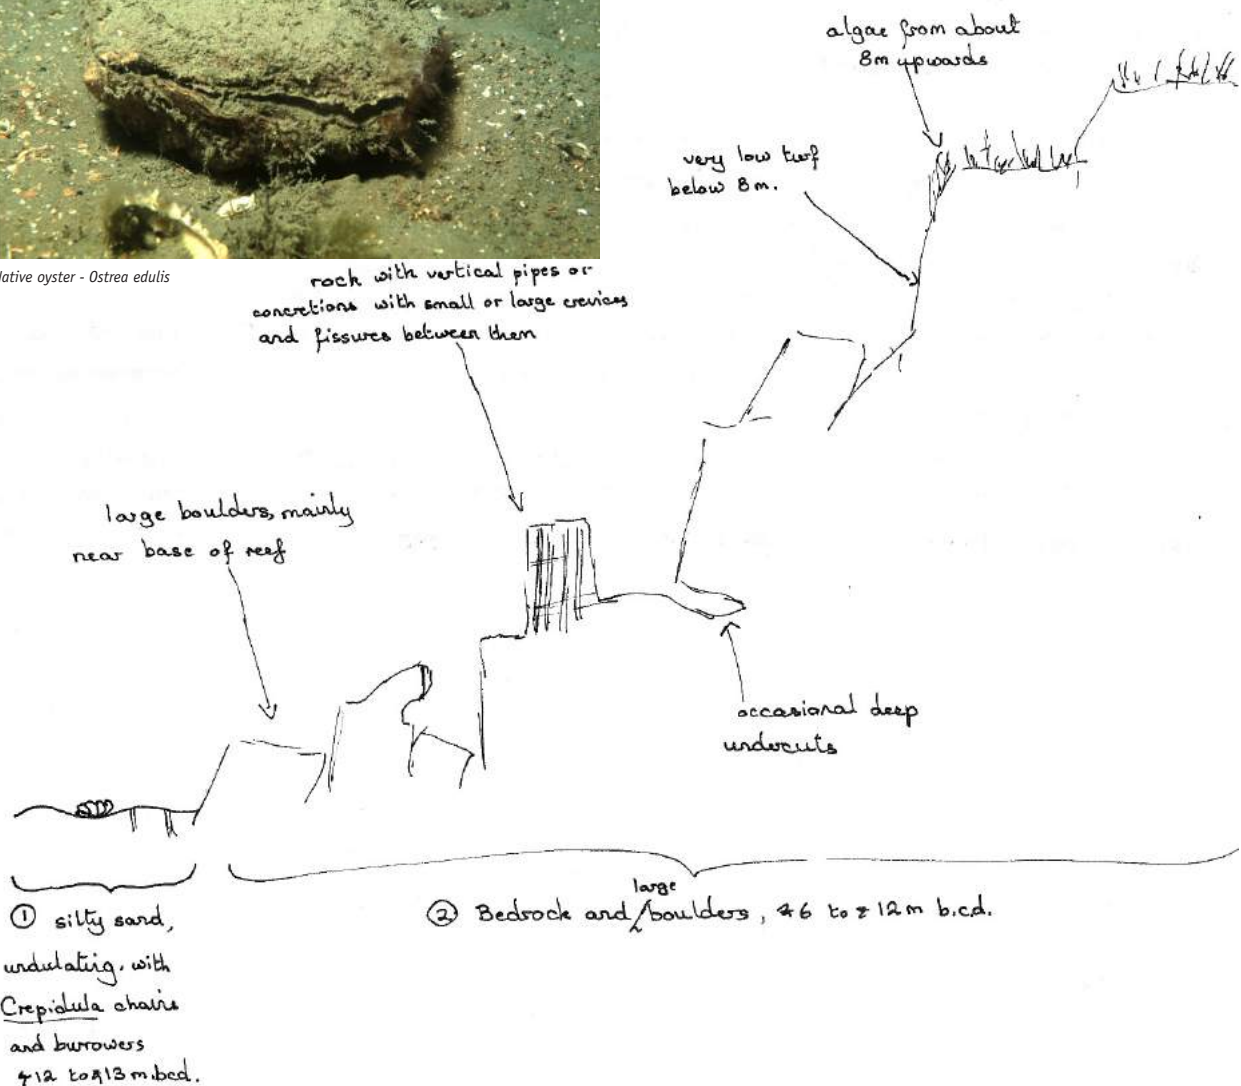 algae from about
8m upwards
very low turf
below 8m.
Native oyster - Ostrea edulis
rock with vertical pipes or
concretions with small or large crevices
and fissures between them
large boulders, mainly
near base of reef
occasional deep
undercuts
① silty sand,
undulating, with
Crepidula chains
and burrowers
12 to 13 m.bcd.
large
② Bedrock and boulders, 6 to 12m b.c.d.